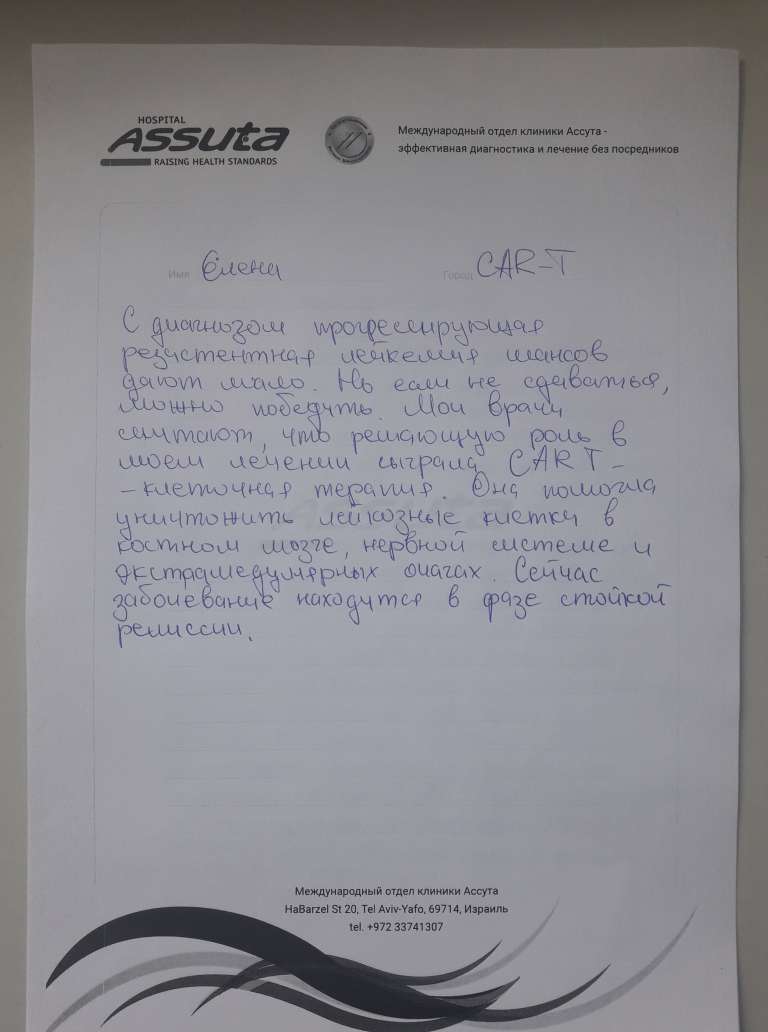 HOSPITAL
Assuta
RAISING HEALTH STANDARDS
Международный отдел клиники Ассута -
эффективная диагностика и лечение без посредников
Имя Елена Город CAR-T
С диагнозом прогрессирующая
резистентная лейкемия шансов
дают мало. Но если не сдаваться,
можно победить. Мои врачи
считают, что решающую роль в
моем лечении сыграла CAR T-
-клеточная терапия. Она помогла
уничтожить лейкозные клетки в
костном мозге, нервной системе и
экстрамедулярных очагах. Сейчас
заболевание находится в фазе стойкой
ремиссии.
Международный отдел клиники Ассута
HaBarzel St 20, Tel Aviv-Yafo, 69714, Израиль
tel. +972 33741307